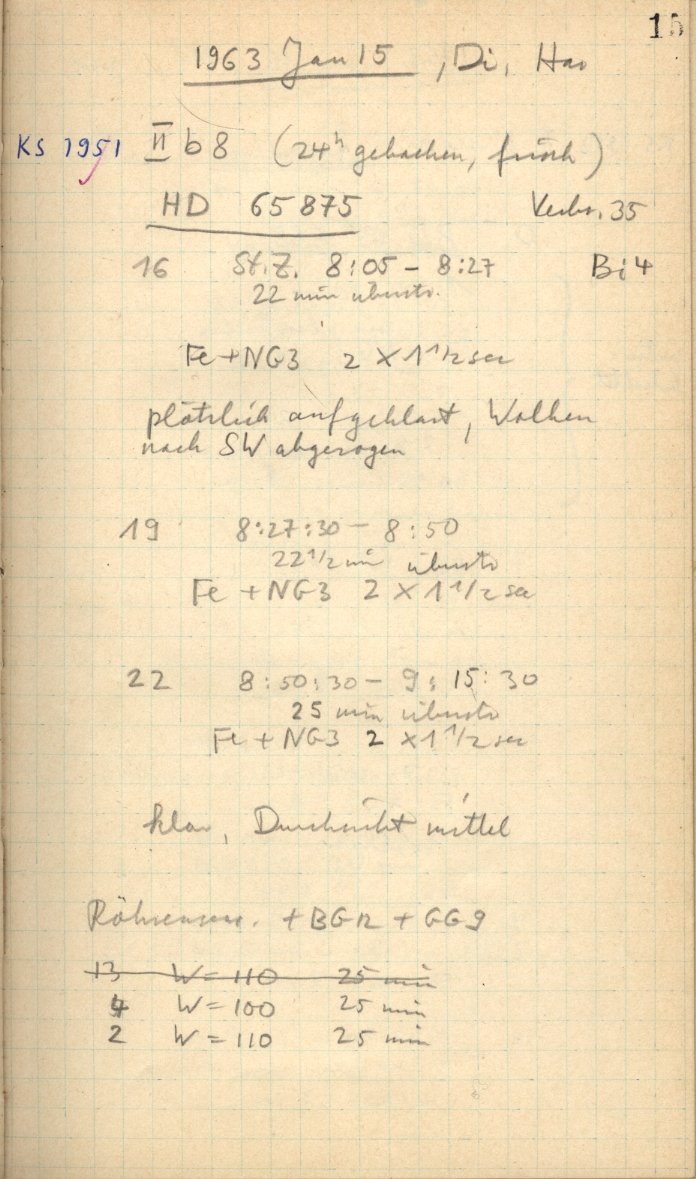 15
1963 Jan 15, Di, Hao
KS 1951 II b 8 (24h gebacken, frisch)
HD 65875 Verbr. 35
16 St.Z. 8:05 – 8:27 Bi 4
22 min überstr.
Fe + NG3 2 × 1 1/2 sec
plötzlich aufgeklart, Wolken
nach SW abgezogen
19 8:27:30 – 8:50
22 1/2 min überstr
Fe + NG3 2 × 1 1/2 sec
22 8:50:30 – 9:15:30
25 min überstr
Fe + NG3 2 × 1 1/2 sec
klar, Durchsicht mittel
+ BG12 + GG9
13 W = 110 25 min
4 W = 100 25 min
2 W = 110 25 min